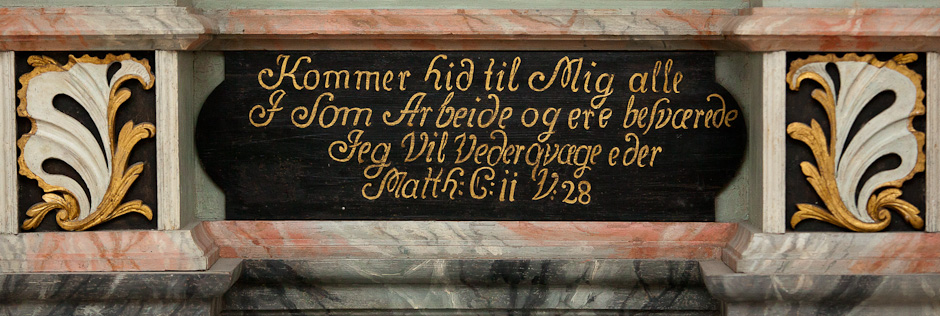 Kommer hid til Mig alle
I Som Arbeide og ere besværede
Jeg Vil Vederqvæge eder
Matth: C: ii V: 28